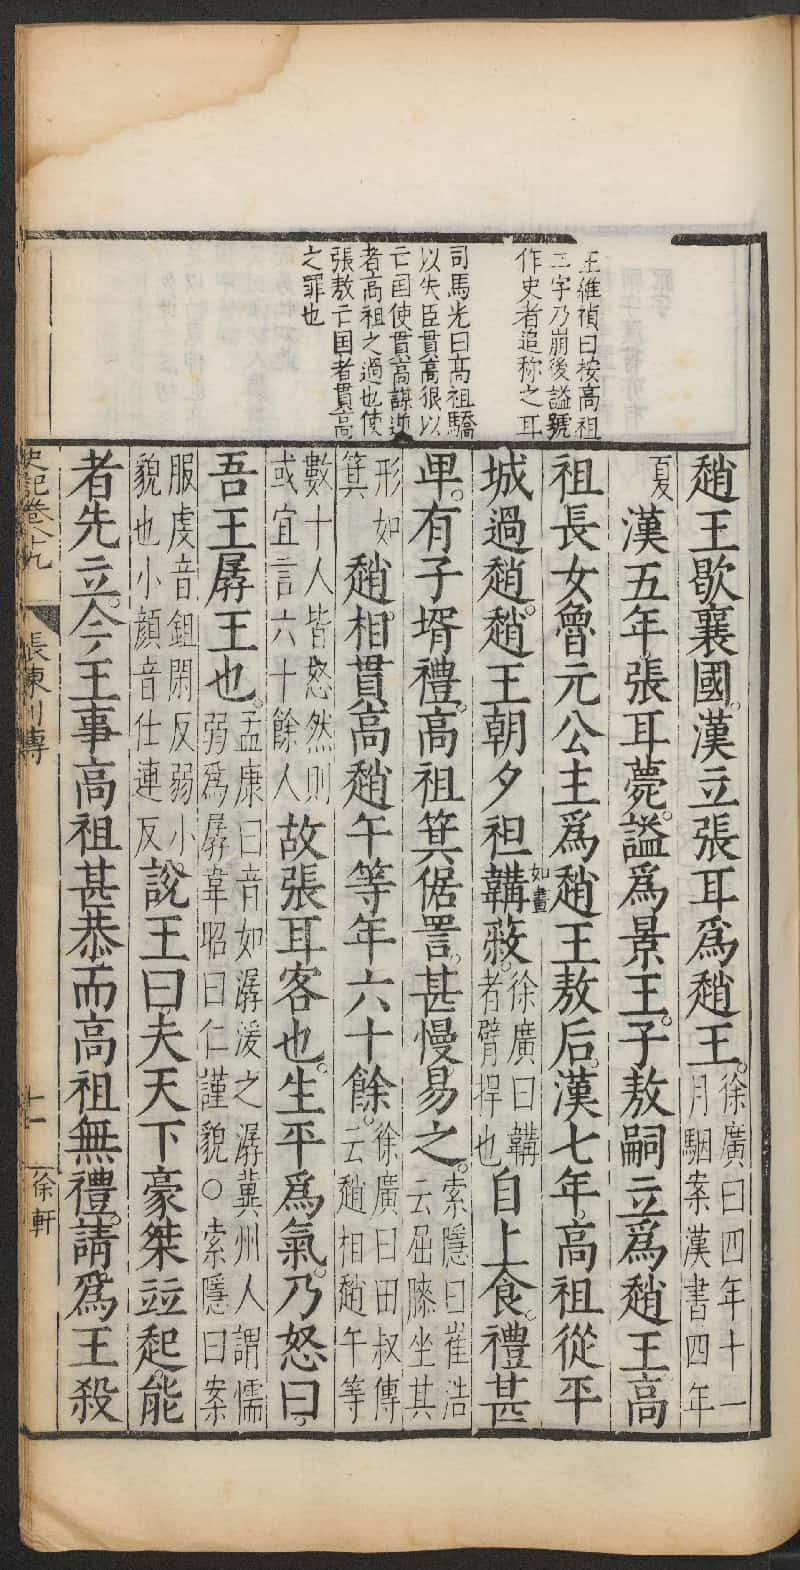 王維禎曰按高祖
二字乃崩後謚號
作史者追称之耳
司馬光曰高祖驕
以失臣貫高狠以
亡国使貫高謀逆
者高祖之過也使
張敖亡国者貫高
之罪也
趙王歇襄國漢立張耳爲趙王徐廣曰四年十一
月駰案漢書四年
夏漢五年張耳薨謚爲景王子敖嗣立爲趙王高
祖長女魯元公主爲趙王敖后漢七年高祖從平
如畫
城過趙趙王朝夕袒韝蔽徐廣曰韝
者臂捍也自上食禮甚
卑有子壻禮高祖箕倨詈甚慢易之索隱曰崔浩
云屈膝坐其
形如
箕趙相貫高趙午等年六十餘徐廣曰田叔傳
云趙相趙午等
數十人皆怒然則
或宜言六十餘人故張耳客也生平爲氣乃怒曰
吾王孱王也孟康曰音如潺湲之潺冀州人謂懦
弱爲孱韋昭曰仁謹貌○索隱曰案
服虔音鉏閑反弱小
貌也小顔音仕連反說王曰夫天下豪桀竝起能
者先立今王事高祖甚恭而高祖無禮請爲王殺
史記卷八十九
張陳列傳
十一
徐軒